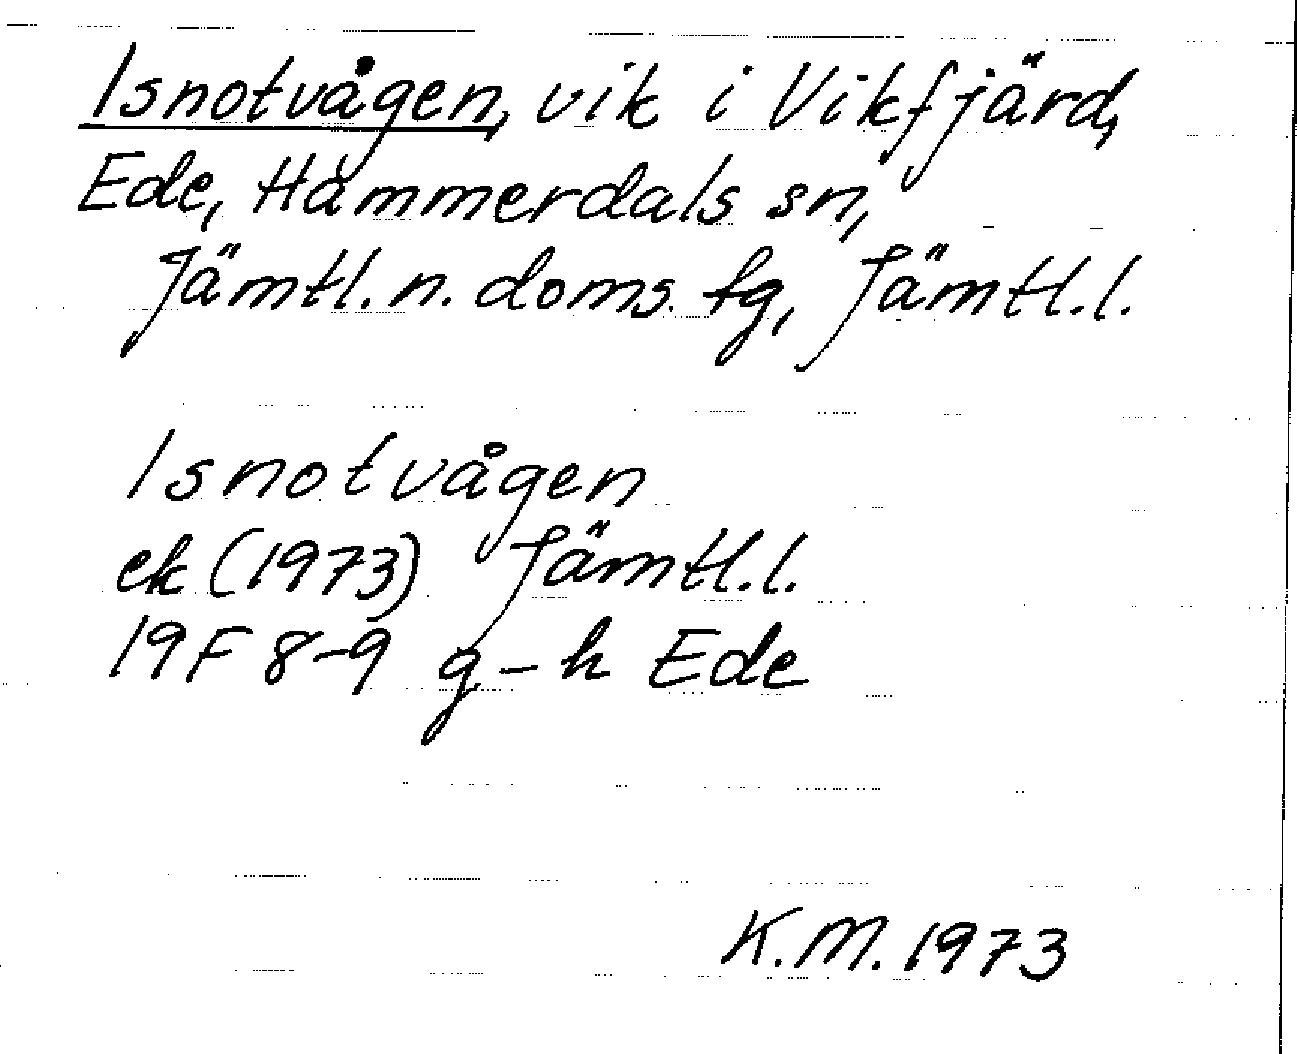 Isnotvågen, vik i Vikfjärd,
Ede, Hammerdals sn,
Jämtl. n. doms. tg, Jämtl. l.
Isnotvågen
ek (1973) Jämtl. l.
19F 8-9 g-h Ede
K.M. 1973